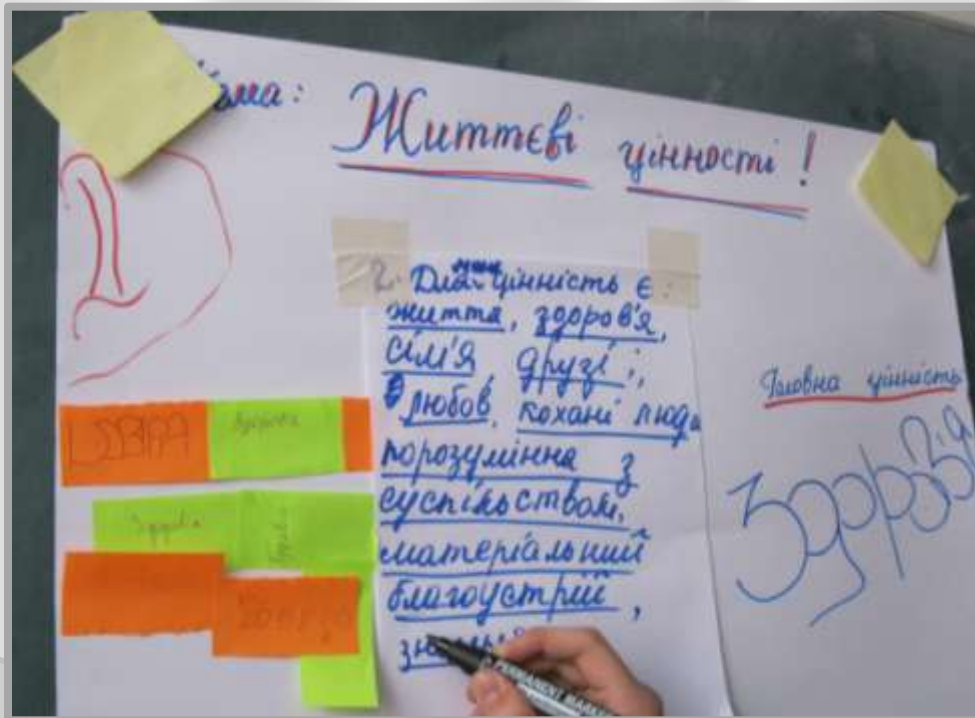 Тема: Життєві цінності !
2. Для цінність є:
життя, здоров'я,
сім'я, друзі,
любов, кохані люди
порозуміння з
суспільством,
матеріальний
благоустрій,
Головна цінність
Здоров'я
PERMANENT MARKER